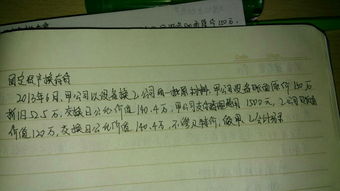 固定资产换存货
2013年6月,甲公司以设备换乙公司一批原材料,甲公司设备账面原价150万
折旧52.5万,交换日公允价值140.4万,甲公司支付运输费用1500元,乙公司
价值120万,交换日公允价值140.4万,不涉及补价,做甲、乙会计分录